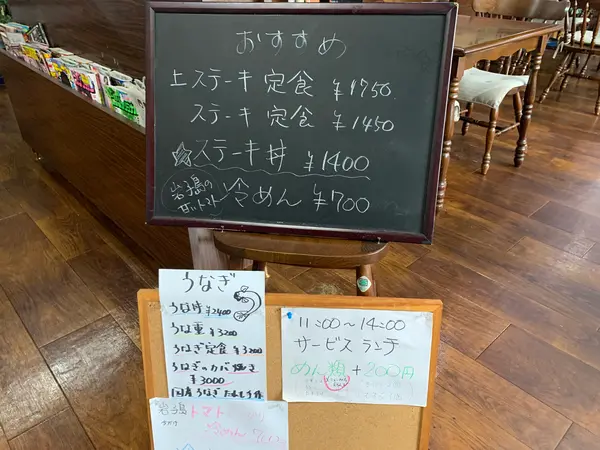 おすすめ
上ステーキ定食 ¥1750
ステーキ定食 ¥1450
☆ステーキ丼 ¥1400
岩子島の
冷めん ¥700
うなぎ
うな丼 ¥2400
うな重 ¥3200
うなぎ定食 ¥3200
うなぎのカバ焼き
¥3000
国産うなぎ
11:00~14:00
サービスランチ
めん類+200円
岩子島トマト